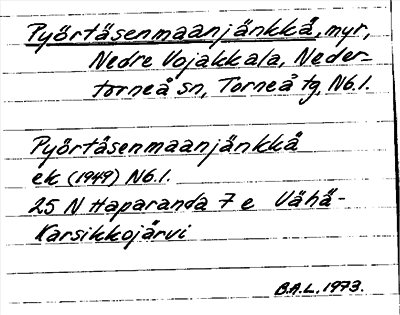 Pyörtäsenmaanjänkkä, myr,
Nedre Vojakkala, Neder-
torneå sn, Torneå tg, N6.1.
Pyörtäsenmaanjänkkä
ek (1949) N6.1.
25 N Haparanda 7 e Vähä-
Karsikkojärvi
B.A.L. 1973.